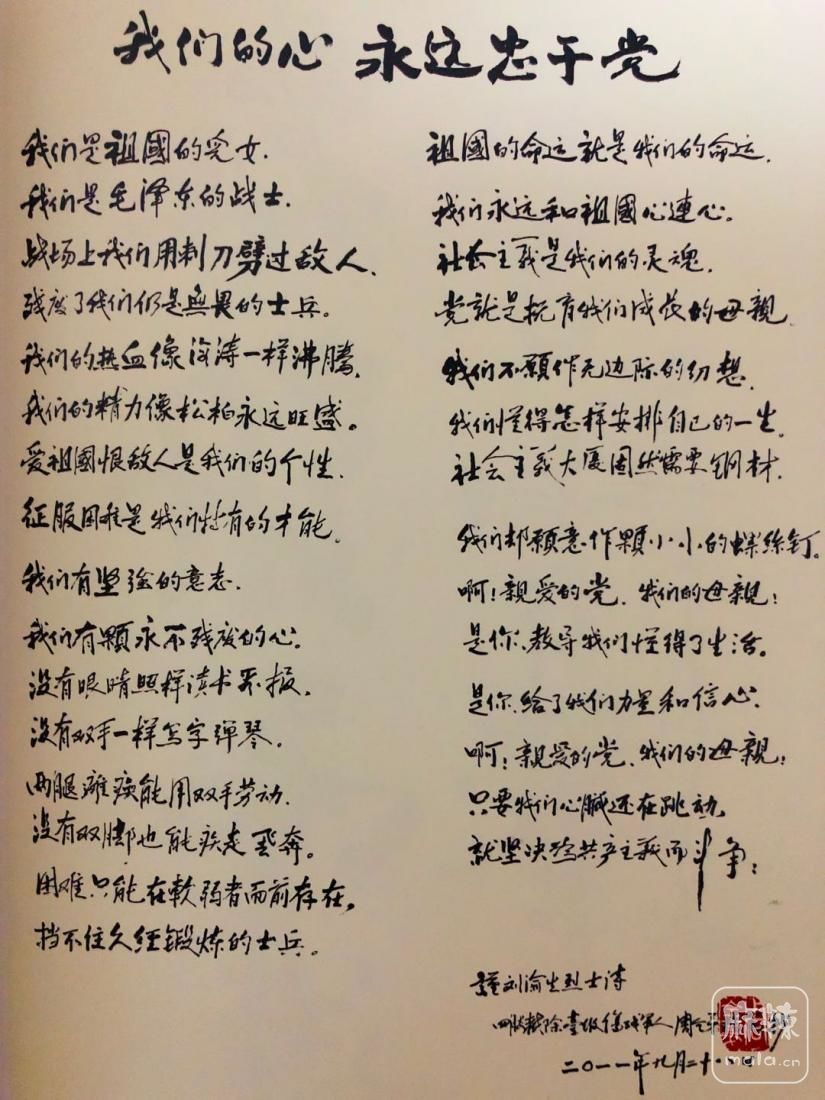 我们的心 永远忠于党
我们是祖國的児女.
我们是毛泽东的战士.
战场上我们用刺刀劈过敌人.
残废了我们仍是無畏的士兵。
我们的热血像波涛一样沸騰.
我们的精力像松柏永远旺盛。
爱祖國恨敌人是我们的个性.
征服困难是我们特有的才能.
我们有坚强的意志.
我们有颗永不残废的心.
没有眼睛照样读书看报.
没有双手一样写字弹琴.
两腿瘫痪能用双手劳动.
没有双脚也能疾走飛奔。
困难只能在軟弱者面前存在,
挡不住久经鍛炼的士兵。
祖國的命运就是我们的命运.
我们永远和祖國心連心。
社会主义是我们的灵魂.
党就是抚育我们成长的母親.
我们不願作无边际的幻想.
我们懂得怎样安排自己的一生.
社会主义大厦固然需要钢材.
我们却願意作顆小小的螺絲釘。
啊!親爱的党.我们的母親!
是你.教导我们懂得了生活。
是你.给了我们力量和信心.
啊!親爱的党.我们的母親!
只要我们心臓还在跳动.
就坚决为共产主義而斗争!
刘渝生烈士诗
四肢截除壹级伤残军人 周
二〇一一年九月二十
麻辣
mala.cn